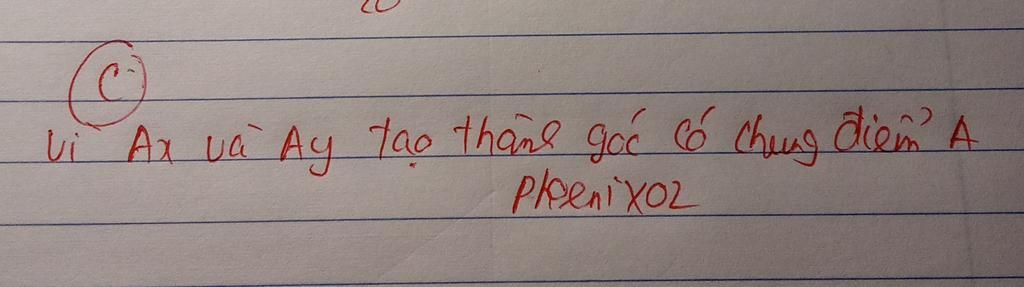 C
Vì Ax và Ay tạo thành góc có chung điểm A
PhoenixO2